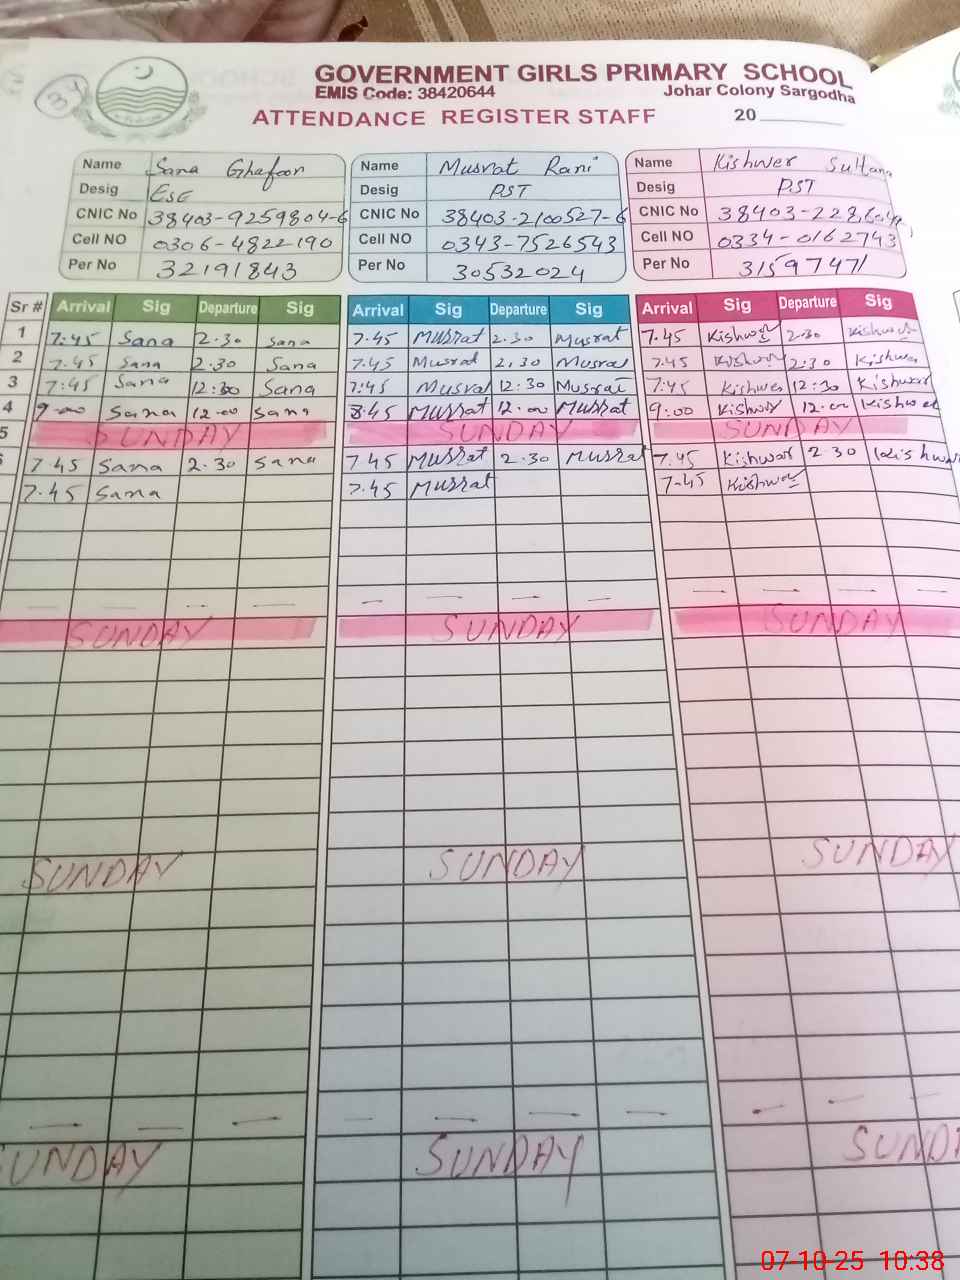 34
GOVERNMENT GIRLS PRIMARY SCHOOL
EMIS Code: 38420644 Johar Colony Sargodha
ATTENDANCE REGISTER STAFF 20
Name Sana Ghafoor Name Musrat Rani Name Kishwer Sultana
Desig ESE Desig PST Desig PST
CNIC No 38403-9259804-6 CNIC No 38403-2100527-6 CNIC No
Cell NO 0306-4822190 Cell NO 0343-7526543 Cell NO 0334-0162743
Per No 32191843 Per No 30532024 Per No 31597471
Sr # Arrival Sig Departure Sig Arrival Sig Departure Sig Arrival Sig Departure Sig
1 7:45 Sana 2.30 Sana 7.45 Musrat 2.30 Musrat 7.45 Kishwer 2.30 Kishwer
2 7.45 Sana 2.30 Sana 7.45 Musrat 2.30 Musrat 7.45 Kishwer 2:30 Kishwer
3 7:45 Sana 12:30 Sana 7:45 Musrat 12:30 Musrat 7:45 Kishwer 12:30 Kishwer
4 9-00 Sana 12.00 Sana 8:45 Musrat 12.00 Musrat 9:00 Kishwer 12.00 Kishwer
5 SUNDAY SUNDAY SUNDAY
7.45 Sana 2.30 Sana 7 45 Musrat 2.30 Musrat 7.45 Kishwer 2 30 Kishwer
7.45 Sana 7.45 Musrat 7-45 Kishwer
SUNDAY SUNDAY SUNDAY
SUNDAY SUNDAY SUNDAY
SUNDAY SUNDAY SUNDAY
07-10-25 10:38